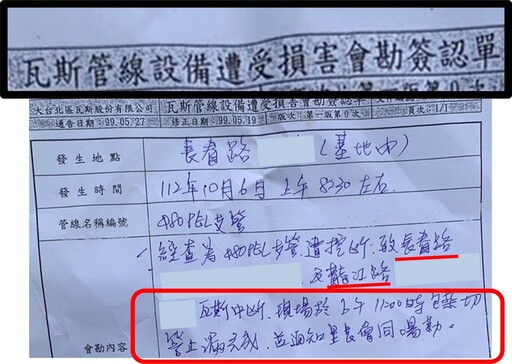 瓦斯管線設備遭受損害會勘簽認單
大台北區瓦斯股份有限公司 瓦斯管線設備遭受損害會勘簽認單
通告日期：99.05.27 修正日期：99.05.19 版次：第一版第0次 頁次：1/1
發生地點 長春路 (基地內)
發生時間 112年10月6日 上午8:30左右.
管線名稱編號 480 PEL支管
經查為480PEL支管遭挖斷，致長春路
及龍江路
瓦斯中斷，現場於上午11:00時包紮切
管止漏完成，並通知里長會同場勘。
會勘內容